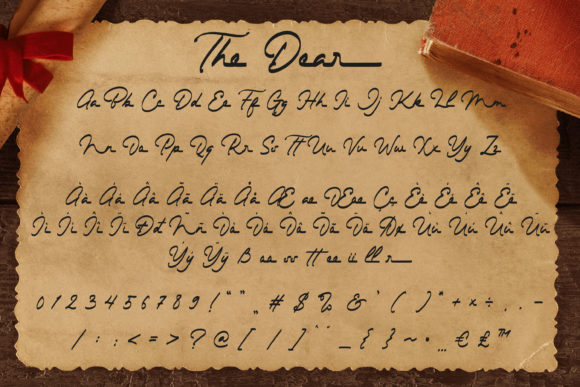 The Dear
Aa Bb Cc Dd Ee Ff Gg Hh Ii Jj Kk Ll Mm
Nn Oo Pp Qq Rr Ss Tt Uu Vv Ww Xx Yy Zz
Àà Áá Ââ Ãã Ää Åå Ææ Œœ Çç Èè Éé Êê Ëë
Ìì Íí Îî Ïï Ðð Ññ Òò Óó Ôô Õõ Öö Øø Ùù Úú Ûû Üü
Ýý Ÿÿ ß aa ss tt ee ii ll r
0 1 2 3 4 5 6 7 8 9 ! “ ” „ # $ % & ' ( ) * + × ÷ , . -
/ : ; < = > ? @ [ / ] _ { } ~ • … € £ ™